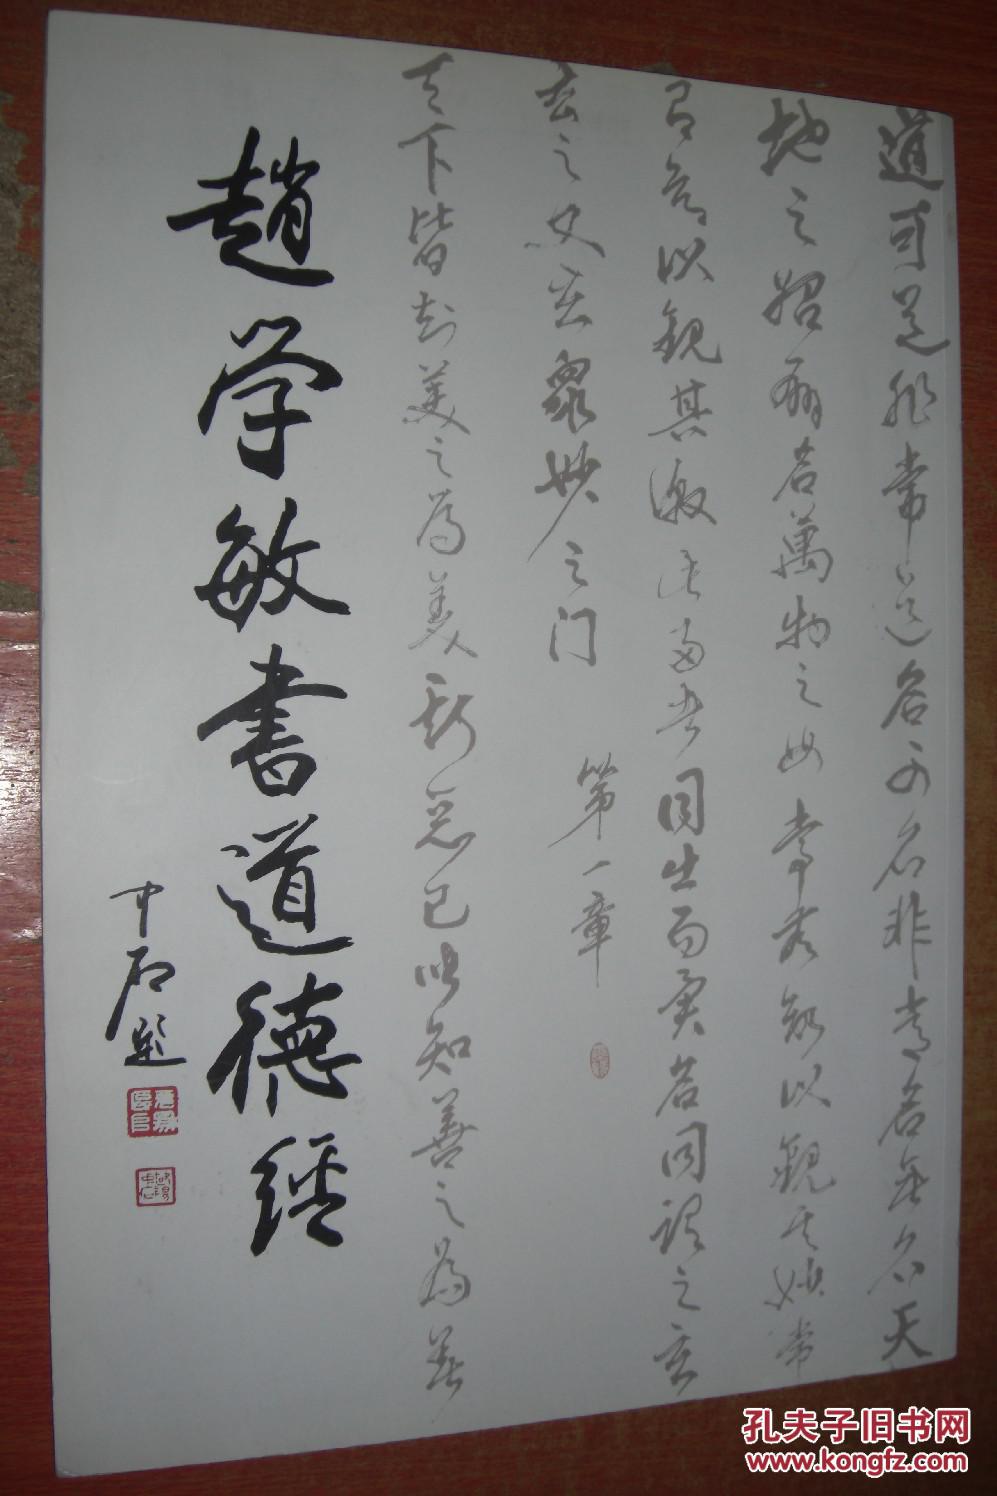 道可道非常道名可名非常名無名天
地之始有名萬物之母常無欲以觀其妙常
有欲以觀其徼此两者同出而異名同謂之玄
玄之又玄眾妙之门 第一章
天下皆知美之為美斯惡已皆知善之為善
趙学敏書道德经
中石题
孔夫子旧书网
www.kongfz.com